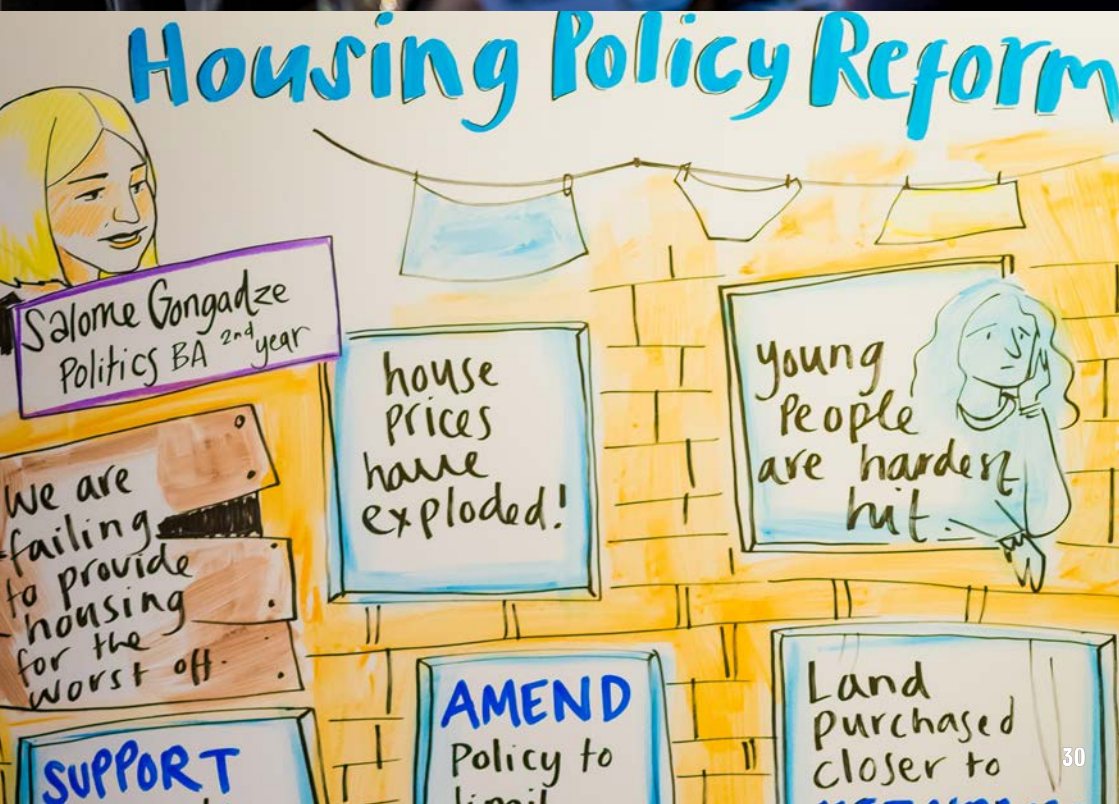 Housing Policy Reform
Salome Gongadze
Politics BA 2nd year
we are
failing
to provide
housing
for the
worst off.
house
prices
have
exploded!
young
people
are hardest
hit.
SUPPORT
AMEND
Policy to
Land
purchased
closer to
30